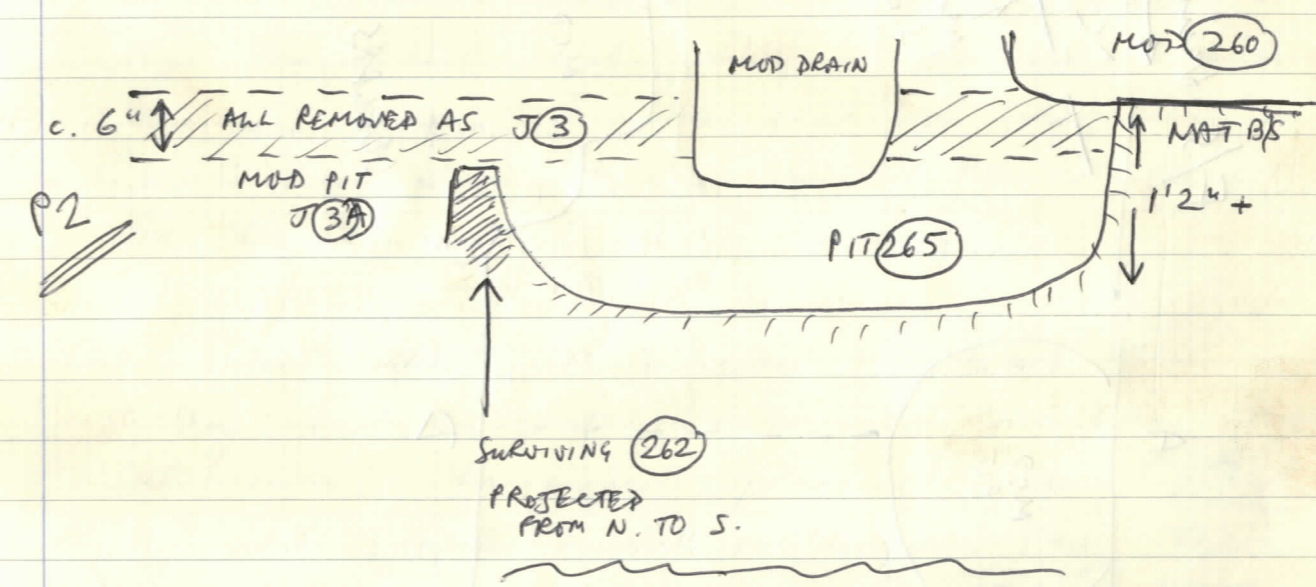 MOD 260
MOD DRAIN
c. 6" ALL REMOVED AS J 3
NAT B/S
MOD PIT
J 3A
P2
1'2" +
PIT 265
SURVIVING 262
PROJECTED
FROM N. TO S.